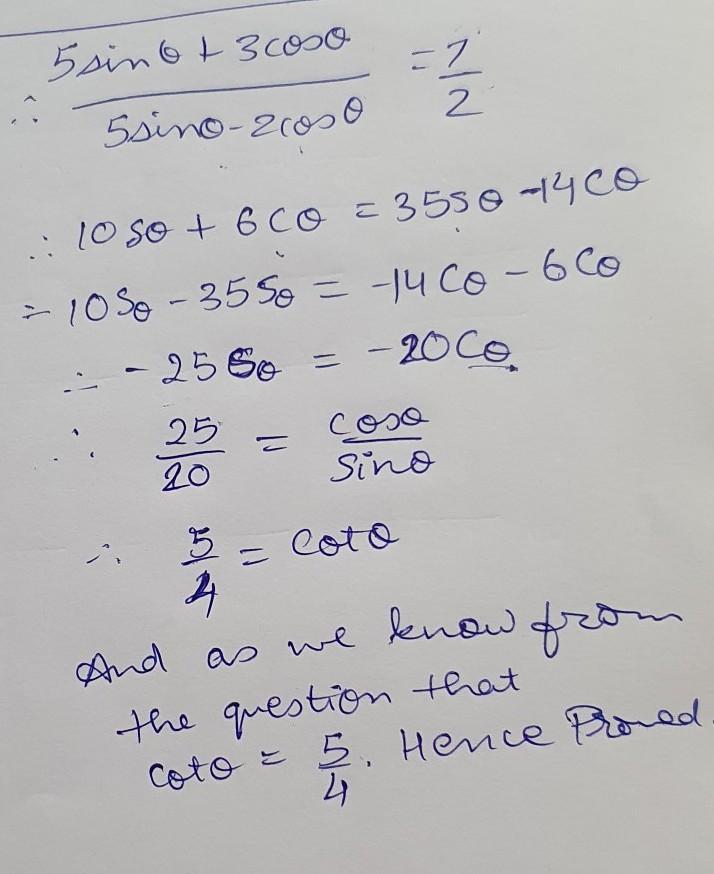 ∴ (5sinθ + 3cosθ)/(5sinθ - 2cosθ) = 7/2
∴ 10Sθ + 6Cθ = 35Sθ - 14Cθ
= 10Sθ - 35Sθ = -14Cθ - 6Cθ
∴ -25Sθ = -20Cθ
∴ 25/20 = cosθ/Sinθ
∴ 5/4 = Cotθ
And as we know from
the question that
Cotθ = 5/4. Hence Proved.